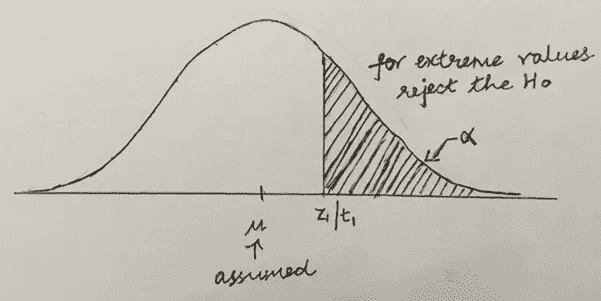 for extreme values
reject the H₀
α
z₁/t₁
μ
↑
assumed